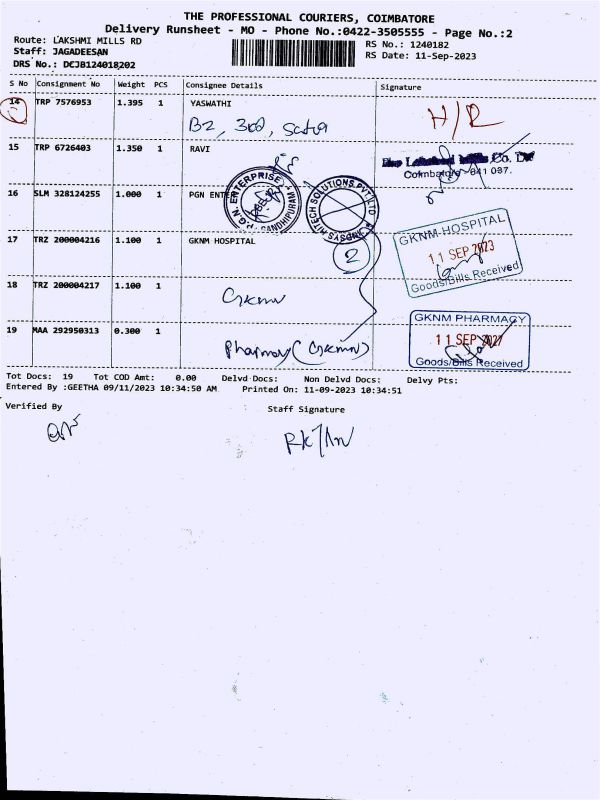 THE PROFESSIONAL COURIERS, COIMBATORE
Delivery Runsheet - MO - Phone No.:0422-3505555 - Page No.:2
Route: LAKSHMI MILLS RD
RS No.: 1240182
Staff: JAGADEESAN
RS Date: 11-Sep-2023
DRS No.: DCJB124018202
S No Consignment No Weight PCS Consignee Details Signature
14 TRP 7576953 1.395 1 YASWATHI
H/R
B2, 3rd,
15 TRP 6726403 1.350 1 RAVI
Coimbatore - 641 037.
16 SLM 328124255 1.000 1 PGN ENTE
P.G.N. ENTERPRISE
HITECH SOLUTIONS PVT LTD
17 TRZ 200004216 1.100 1 GKNM HOSPITAL
2
GKNM HOSPITAL
11 SEP 2023
Goods/Bills Received
18 TRZ 200004217 1.100 1
Gknm
19 MAA 292950313 0.300 1
Pharmacy (Gknm)
GKNM PHARMACY
11 SEP 2027
Goods/Bills Received
Tot Docs: 19 Tot COD Amt: 0.00 Delvd Docs: Non Delvd Docs: Delvy Pts:
Entered By :GEETHA 09/11/2023 10:34:50 AM Printed On: 11-09-2023 10:34:51
Verified By
Staff Signature